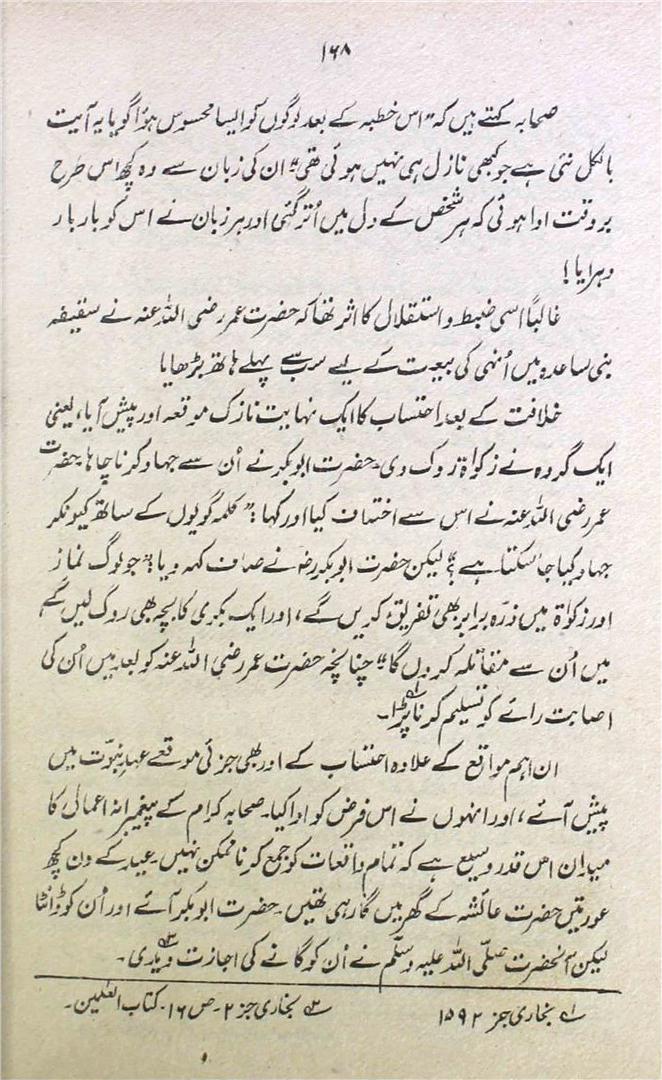 ۱۶۸
صحابہ کہتے ہیں کہ "اس خطبہ کے بعد لوگوں کو ایسا محسوس ہوا گویا یہ آیت
بالکل نئی ہے جو کبھی نازل ہی نہیں ہوئی تھی" ان کی زبان سے وہ کچھ اس طرح
بروقت ادا ہوئی کہ ہر شخص کے دل میں اُتر گئی اور ہر زبان نے اس کو بار بار
دہرایا!
غالباً اسی ضبط و استقلال کا اثر تھا کہ حضرت عمر رضی اللہ عنہ نے سقیفہ
بنی ساعدہ میں اُنہی کی بیعت کے لیے سب سے پہلے ہاتھ بڑھایا
خلافت کے بعد احتساب کا ایک نہایت نازک موقعہ اور پیش آیا، یعنی
ایک گروہ نے زکواۃ روک دی۔ حضرت ابوبکر نے اُن سے جہاد کرنا چاہا، حضرت
عمر رضی اللہ عنہ نے اس سے اختلاف کیا اور کہا: "کلمہ گویوں کے ساتھ کیونکر
جہاد کیا جا سکتا ہے؟" لیکن حضرت ابوبکر رضؓ نے صاف کہہ دیا: "جو لوگ نماز
اور زکواۃ میں ذرّہ برابر بھی تفریق کریں گے، اور ایک بکری کا بچہ بھی روک لیں گے
میں اُن سے مقاتلہ کروں گا" چنانچہ حضرت عمر رضی اللہ عنہ کو بعد میں اُن کی
اصابت رائے کو تسلیم کرنا پڑا۔ ؎۱
ان اہم مواقع کے علاوہ احتساب کے اور بھی جزئی موقعے عہد نبوّت میں
پیش آئے، اور انہوں نے اس فرض کو ادا کیا۔ صحابہ کرام کے پیغمبرانہ اعمال کا
میدان اس قدر وسیع ہے کہ تمام واقعات کو جمع کرنا ممکن نہیں۔ عید کے دن کچھ
عورتیں حضرت عائشہ کے گھر میں گا رہی تھیں۔ حضرت ابوبکر آئے اور اُن کو ڈانٹا
لیکن آنحضرت صلّی اللہ علیہ وسلّم نے اُن کو گانے کی اجازت دیدی۔ ؎۲
؎۱ بخاری جز ۲ ۱۵۹ ؎۲ بخاری جز ۲۔ ص ۱۶۔ کتاب العلمین۔